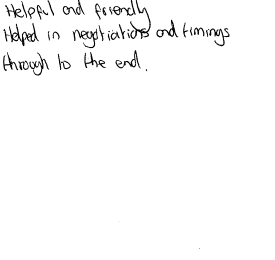 Helpful and friendly
Helped in negotiations and timings
through to the end.